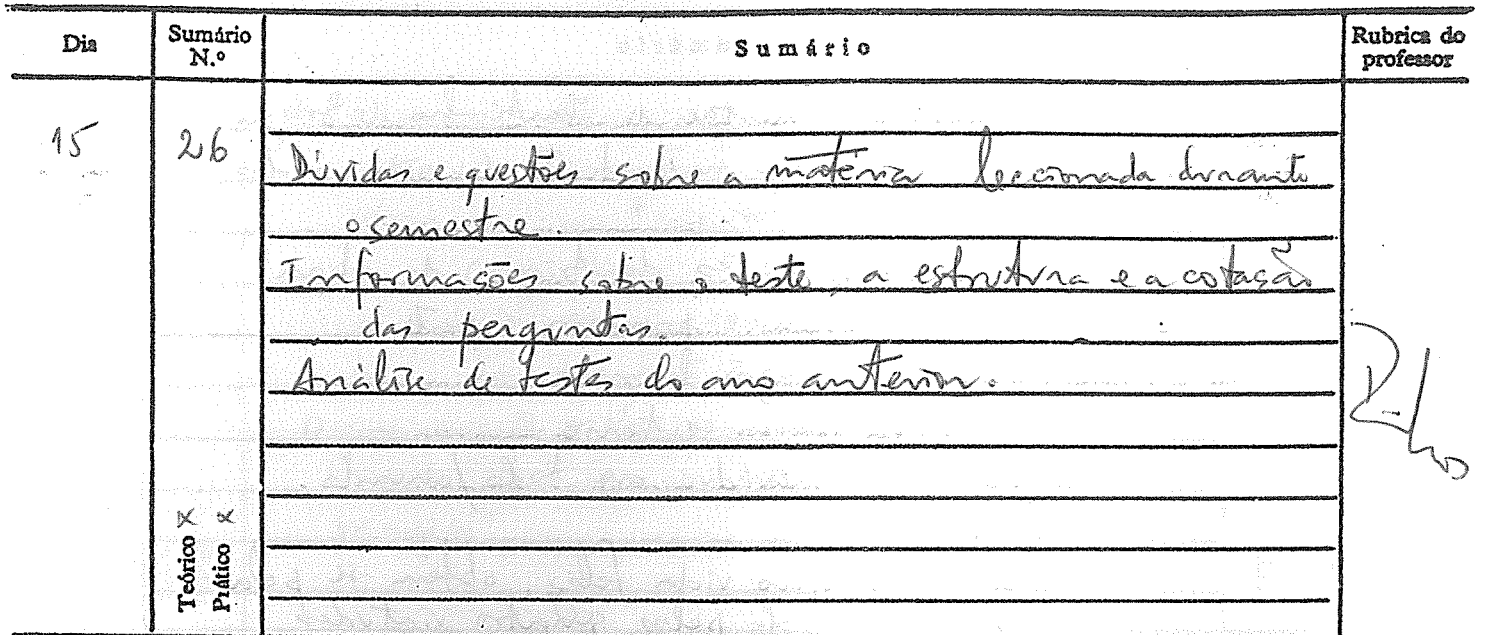 Dia Sumário N.º Sumário Rubrica do professor
15 26
Dúvidas e questões sobre a matéria leccionada durante
o semestre.
Informações sobre o teste, a estrutura e a cotação
das perguntas.
Análise de testes do ano anterior.
Teórico x
Prático x